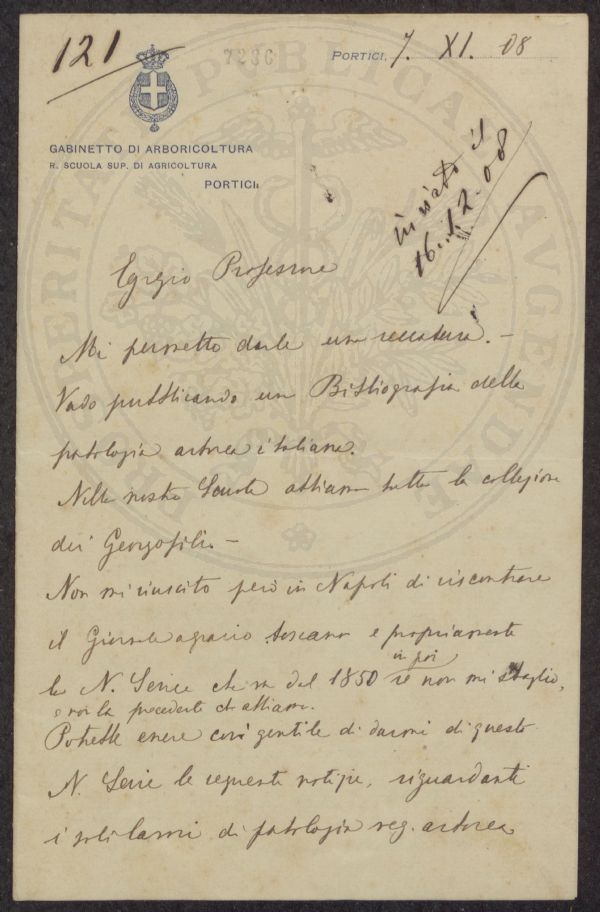 121
7236
PORTICI, 7. XI. 08
GABINETTO DI ARBORICOLTURA
R. SCUOLA SUP. DI AGRICOLTURA
PORTICI
inviato il
16.12.08
Egregio Professore
Mi permetto darle una seccatura. -
Vado pubblicando una Bibliografia della
patologia arborea italiana.
Nella nostra Scuola abbiamo tutta la collezione
dei Georgofili. -
Non mi è riuscito però in Napoli di riscontrare
il Giornale agrario toscano e propriamente
la N. Serie che va dal 1850 in poi se non mi sbaglio,
e non la precedente che abbiamo.
Potrebbe essere così gentile di darmi di questa
N. Serie le seguenti notizie, riguardanti
i soli lavori di patologia veg. arborea